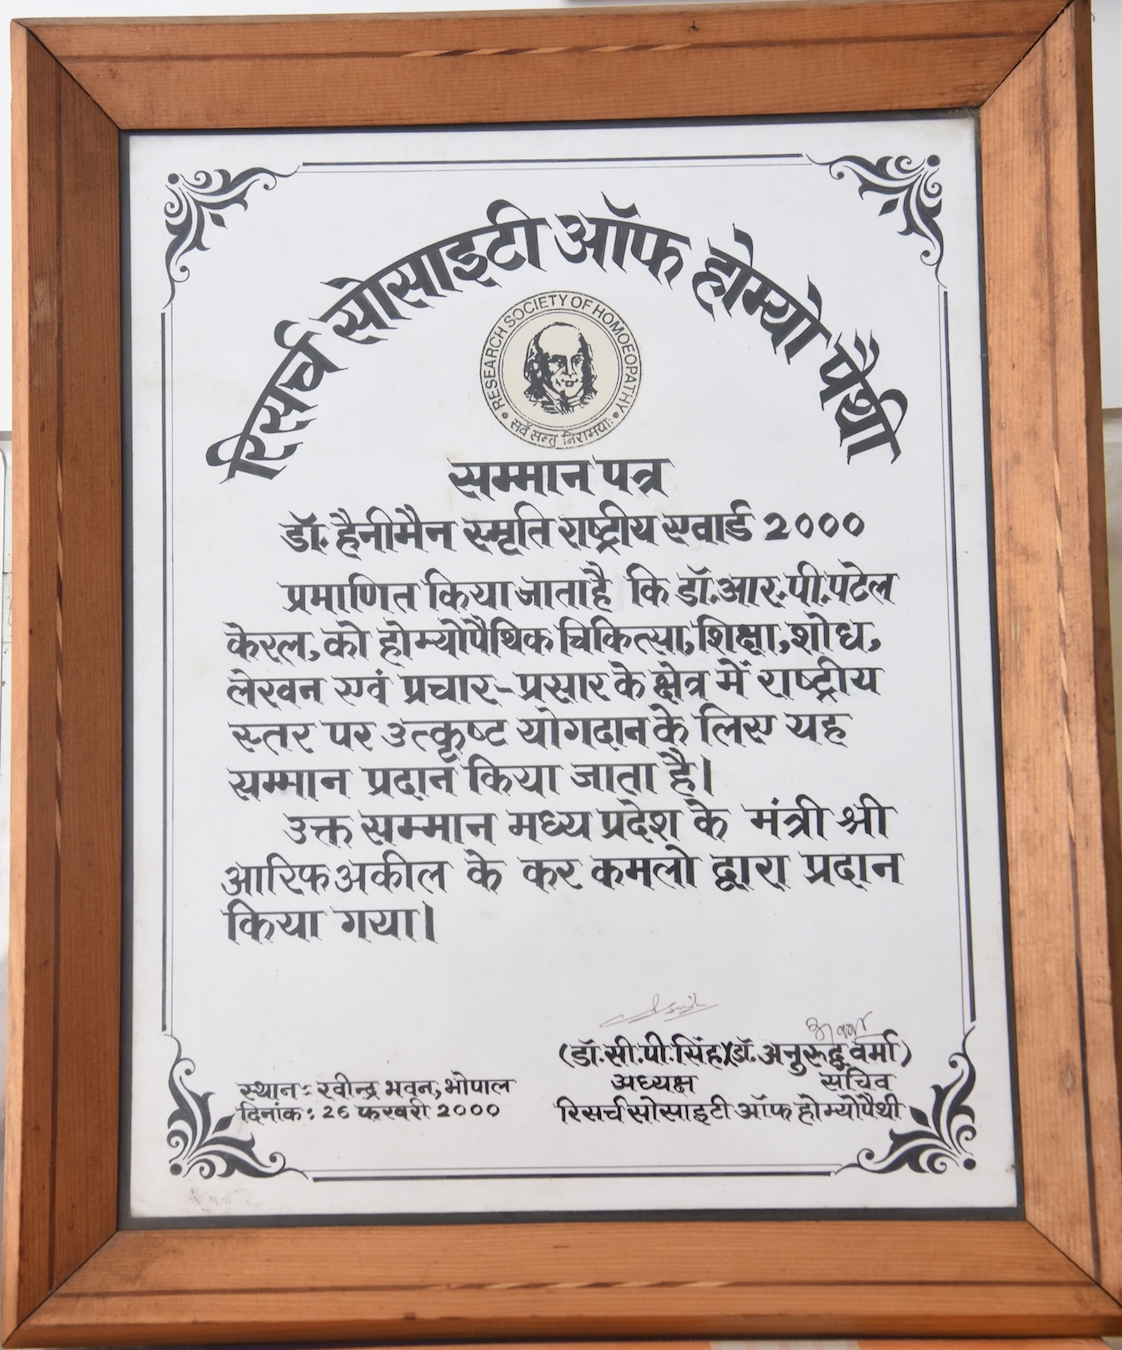 रिसर्च सोसाइटी ऑफ होम्यो पैथी
RESEARCH SOCIETY OF HOMOEOPATHY
सर्वे सन्तु निरामयाः
सम्मान पत्र
डॉ. हैनीमैन स्मृति राष्ट्रीय एवार्ड 2000
प्रमाणित किया जाता है कि डॉ.आर.पी.पटेल
केरल, को होम्योपैथिक चिकित्सा, शिक्षा, शोध,
लेखन एवं प्रचार-प्रसार के क्षेत्र में राष्ट्रीय
स्तर पर उत्कृष्ट योगदान के लिए यह
सम्मान प्रदान किया जाता है।
उक्त सम्मान मध्य प्रदेश के मंत्री श्री
आरिफ अकील के कर कमलो द्वारा प्रदान
किया गया।
(डॉ.सी.पी.सिंह)(डॉ.अनुरूद्ध वर्मा)
अध्यक्ष सचिव
रिसर्च सोसाइटी ऑफ होम्योपैथी
स्थान: रवीन्द्र भवन, भोपाल
दिनांक: 26 फरवरी 2000